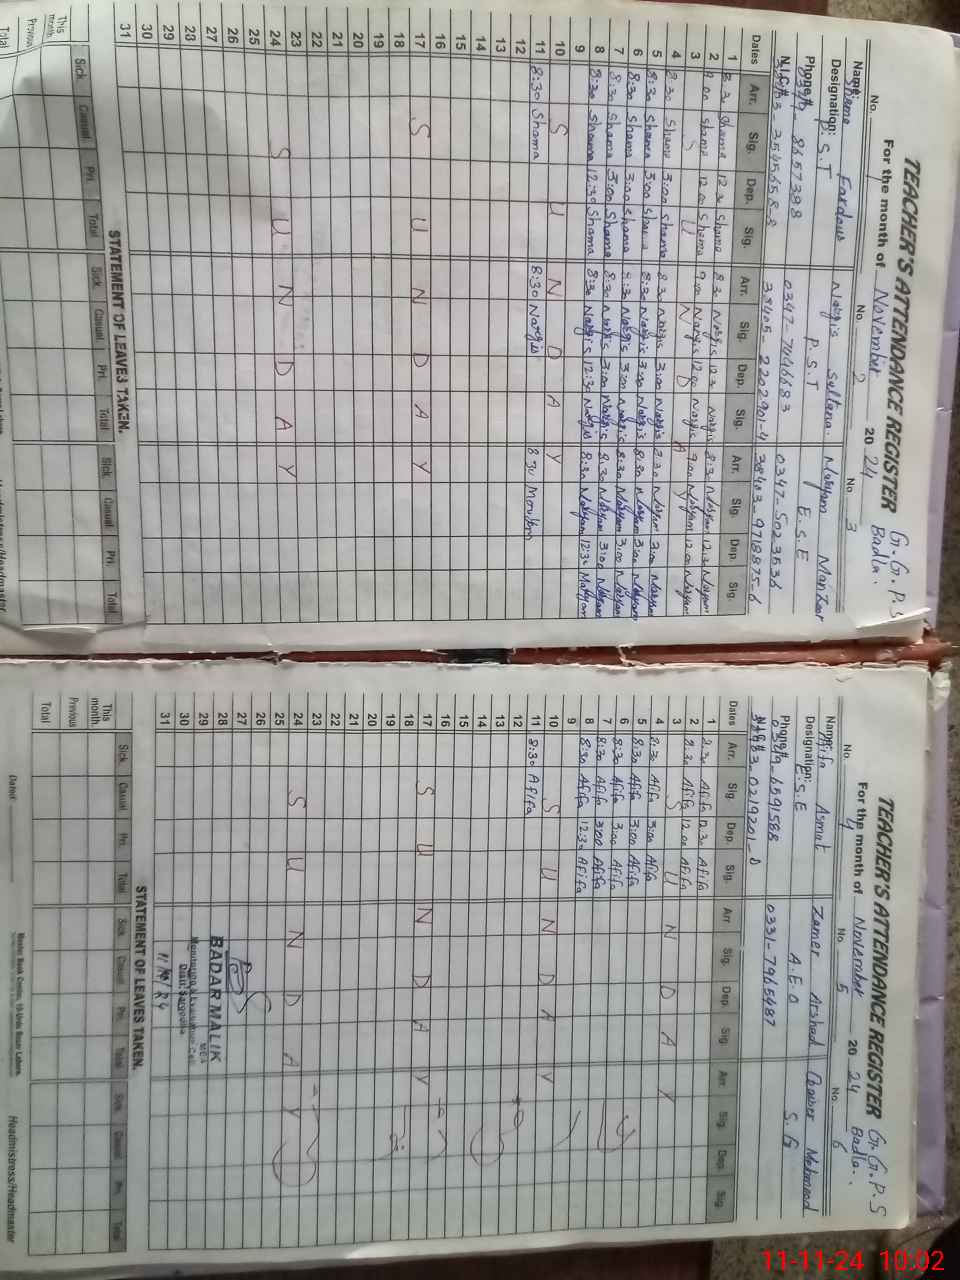 TEACHER'S ATTENDANCE REGISTER G.G.P.S
For the month of November 2024 Badla.
No. 1 No. 2 No. 3
Name: Shama Fardous Nargis Sultana. Maryam Manzoor
Designation: P.S.T P.S.T E.S.E
Phone# 8657398 0347-7446683 0347-5023536
N.I.C.# 38405-2202901-4 38403-9718875-6
Dates Arr. Sig. Dep. Sig. Arr. Sig. Dep. Sig. Arr. Sig. Dep. Sig.
1 8.30 Shama 12.30 Shama 8.30 Nargis 12.30 Nargis 8.30 Maryam 12.30 Maryam
2 9.00 Shama 12.00 Shama 9.00 Nargis 12.00 Nargis 9.00 Maryam 12.00 Maryam
3 S U N D A Y
4 8.30 Shama 3:00 Shama 8.30 Nargis 3:00 Nargis 8.30 Maryam 3:00 Maryam
5 8:30 Shama 3:00 Shama 8:30 Nargis 3:00 Nargis 8:30 Maryam 3:00 Maryam
6 8:30 Shama 3:00 Shama 8:30 Nargis 3:00 Nargis 8:30 Maryam 3:00 Maryam
7 8:30 Shama 3:00 Shama 8:30 Nargis 3:00 Nargis 8:30 Maryam 3:00 Maryam
8 8:30 Shama 12:30 Shama 8:30 Nargis 12:30 Nargis 8:30 Maryam 12:30 Maryam
9
10 S U N D A Y
11 8:30 Shama 8:30 Nargis 8:30 Maryam
12
13
14
15
16
17 S U N D A Y
18
19
20
21
22
23
24 S U N D A Y
25
26
27
28
29
30
31
STATEMENT OF LEAVES TAKEN.
Sick. Casual Pri. Total Sick. Casual Pri. Total Sick. Casual Pri. Total
This month
Previous
Total
Headmistress/Headmaster
TEACHER'S ATTENDANCE REGISTER G.G.P.S
For the month of November 2024 Badla.
No. 4 No. 5 No. 6
Name: Afifa Asmat Zamer Arshad Mehmood
Designation: E.S.E A.E.O S.G
Phone# 0349-6591588 0331-7965487
N.I.C.# 0219201-0
Dates Arr. Sig. Dep. Sig. Arr. Sig. Dep. Sig. Arr. Sig. Dep. Sig.
1 8.30 Afifa 12.30 Afifa
2 8.30 Afifa 12.00 Afifa
3 S U N D A Y
4 8:30 Afifa 3:00 Afifa
5 8:30 Afifa 3:00 Afifa
6 8:30 Afifa 3:00 Afifa
7 8:30 Afifa 3:00 Afifa
8 8:30 Afifa 12:30 Afifa
9
10 S U N D A Y
11 8:30 Afifa
12
13
14
15
16
17 S U N D A Y
18
19
20
21
22
23
24 S U N D A Y
25
26
27
28
29
30
31
BADAR MALIK
MEA
Monitoring & Evaluation Cell
Distt. Sargodha
11/11/24
STATEMENT OF LEAVES TAKEN.
Sick Casual Pri. Total Sick. Casual Pri. Total Sick. Casual Pri. Total
This month
Previous
Total
Dated
Headmistress/Headmaster
11-11-24 10:02